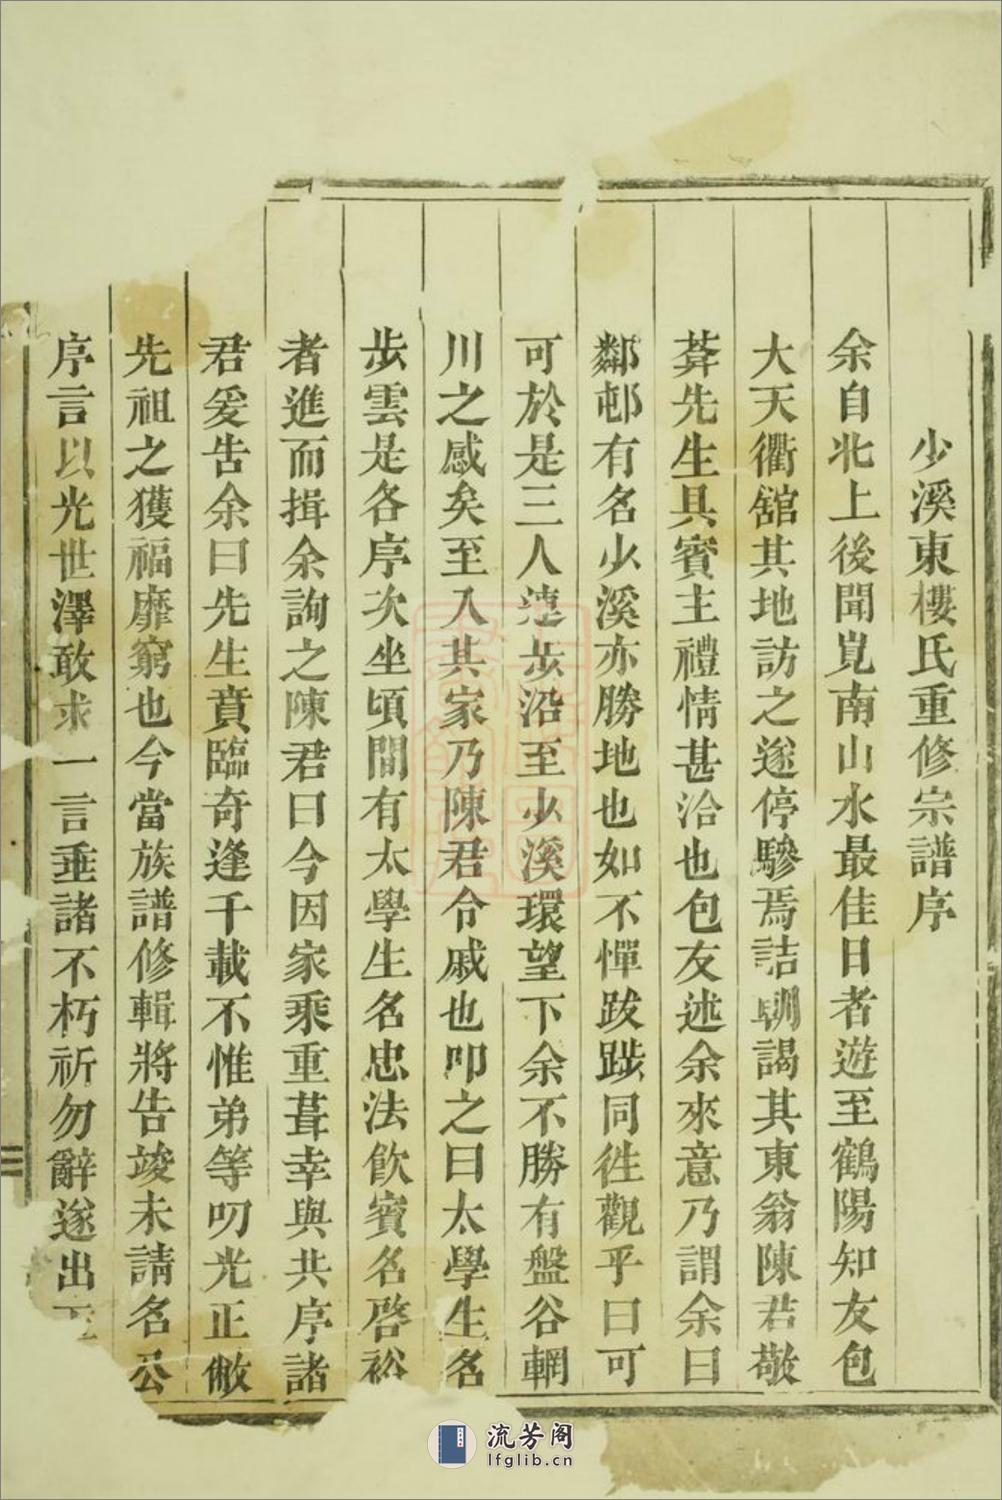 少溪東樓氏重修宗譜序
余自北上後聞覓南山水最佳日者遊至鶴陽知友包
大天衢舘其地訪之遂停驂焉詰朝謁其東翁陳君敬
莽先生具賓主禮情甚洽也包友述余來意乃謂余曰
鄰邨有名少溪亦勝地也如不憚跋踄同徃觀乎曰可
可於是三人連步沿至少溪環望下余不勝有盤谷輞
川之感矣至入其家乃陳君令戚也叩之曰太學生名
步雲是各序次坐頃間有太學生名忠法飲賓名啓裕
者進而揖余詢之陳君曰今因家乘重葺幸與共序諸
君爰告余曰先生賁臨奇逢千載不惟弟等叨光正儆
先祖之獲福靡窮也今當族譜修輯將告竣未請名公
序言以光世澤敢求一言垂諸不朽祈勿辭遂出
流芳阁
lfglib.cn